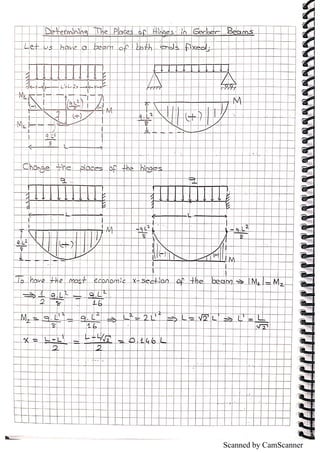 Determining The Places of Hinges in Gerber Beams
Let us have a beam of both ends fixed;
M₂
M
M
(+)
(+)
M₂
qL²
8
qL²
8
L
Change the places of the hinges
q
q
L
L
M
-qL²
8
-qL²
8
qL²
8
(+)
M
To have the most economic x-section of the beam ⇒ |M₁| = M₂
⇒ 1/2 qL²/8 = qL²/16
M₂ = qL'²/8 = qL²/16 ⇒ L² = 2L'² ⇒ L = √2 L' ⇒ L' = L/√2
x = L-L'/2 = L-L/√2/2 = 0.146 L
Scanned by CamScanner